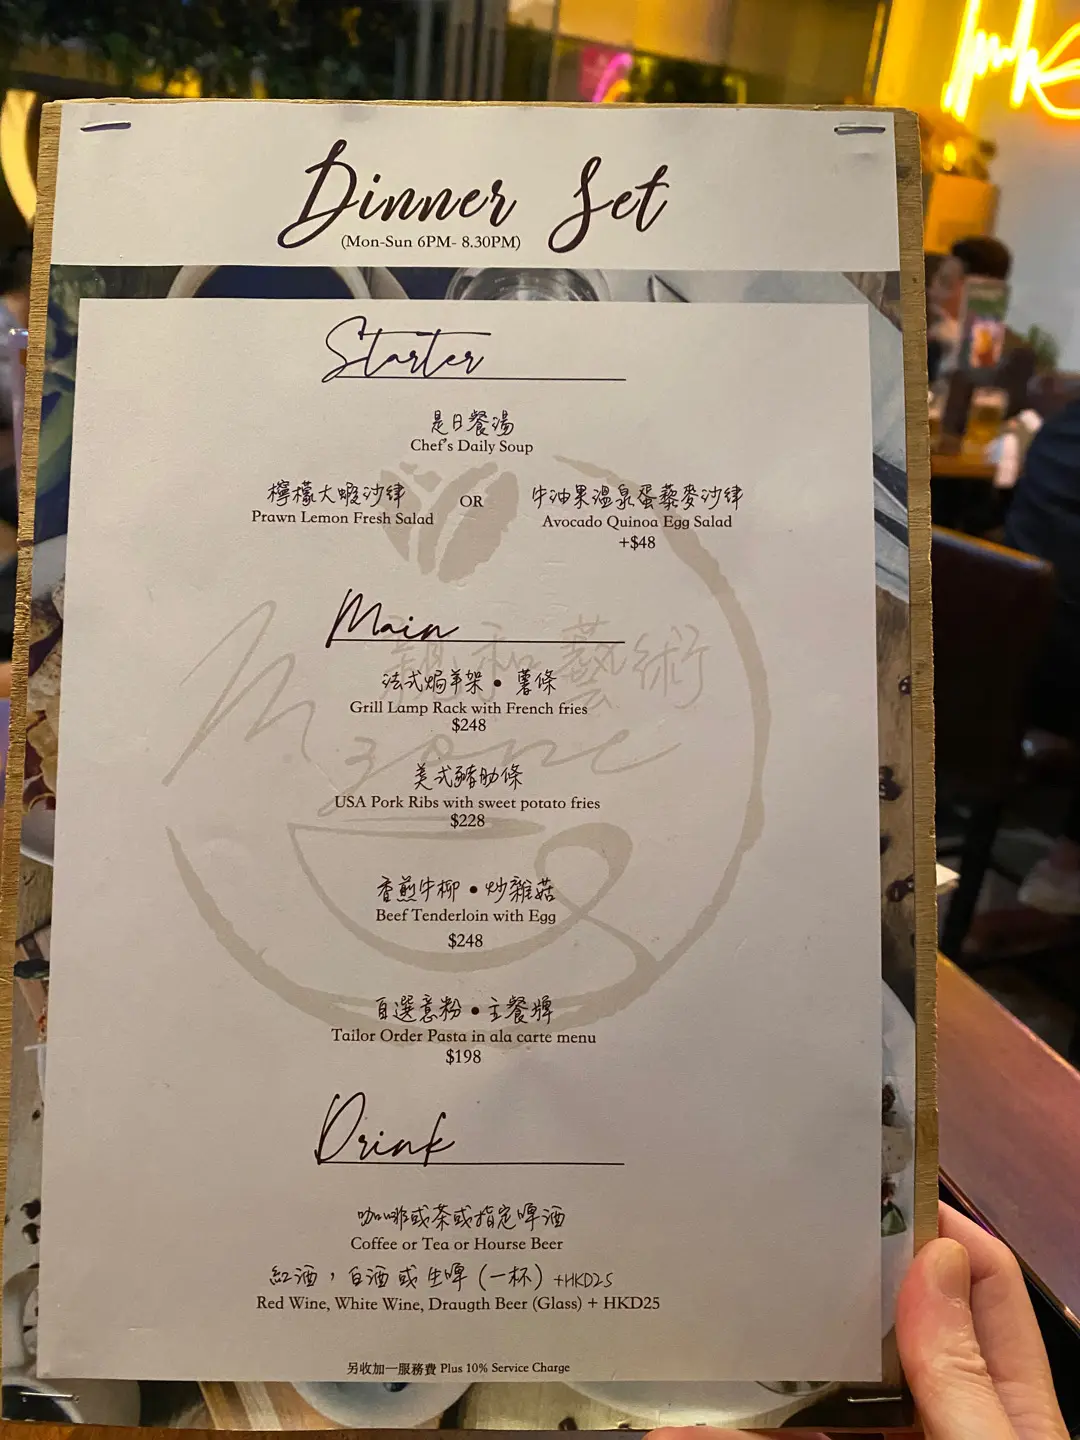 Dinner Set
(Mon-Sun 6PM- 8.30PM)
Starter
是日餐湯
Chef's Daily Soup
檸檬大蝦沙律
Prawn Lemon Fresh Salad
OR
牛油果溫泉蛋藜麥沙律
Avocado Quinoa Egg Salad
+$48
Main
法式焗羊架 • 薯條
Grill Lamp Rack with French fries
$248
美式豬肋條
USA Pork Ribs with sweet potato fries
$228
香煎牛柳 • 炒雜菇
Beef Tenderloin with Egg
$248
自選意粉 • 主餐牌
Tailor Order Pasta in ala carte menu
$198
親和藝術
Mzone
Drink
咖啡或茶或指定啤酒
Coffee or Tea or Hourse Beer
紅酒，白酒或生啤（一杯）+HKD25
Red Wine, White Wine, Draugth Beer (Glass) + HKD25
另收加一服務費 Plus 10% Service Charge